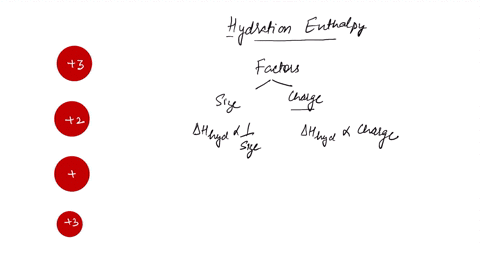 Hydration Enthalpy
Factors
Size
Charge
ΔHhyd ∝ 1/Size
ΔHhyd ∝ Charge
+3
+2
+
+3